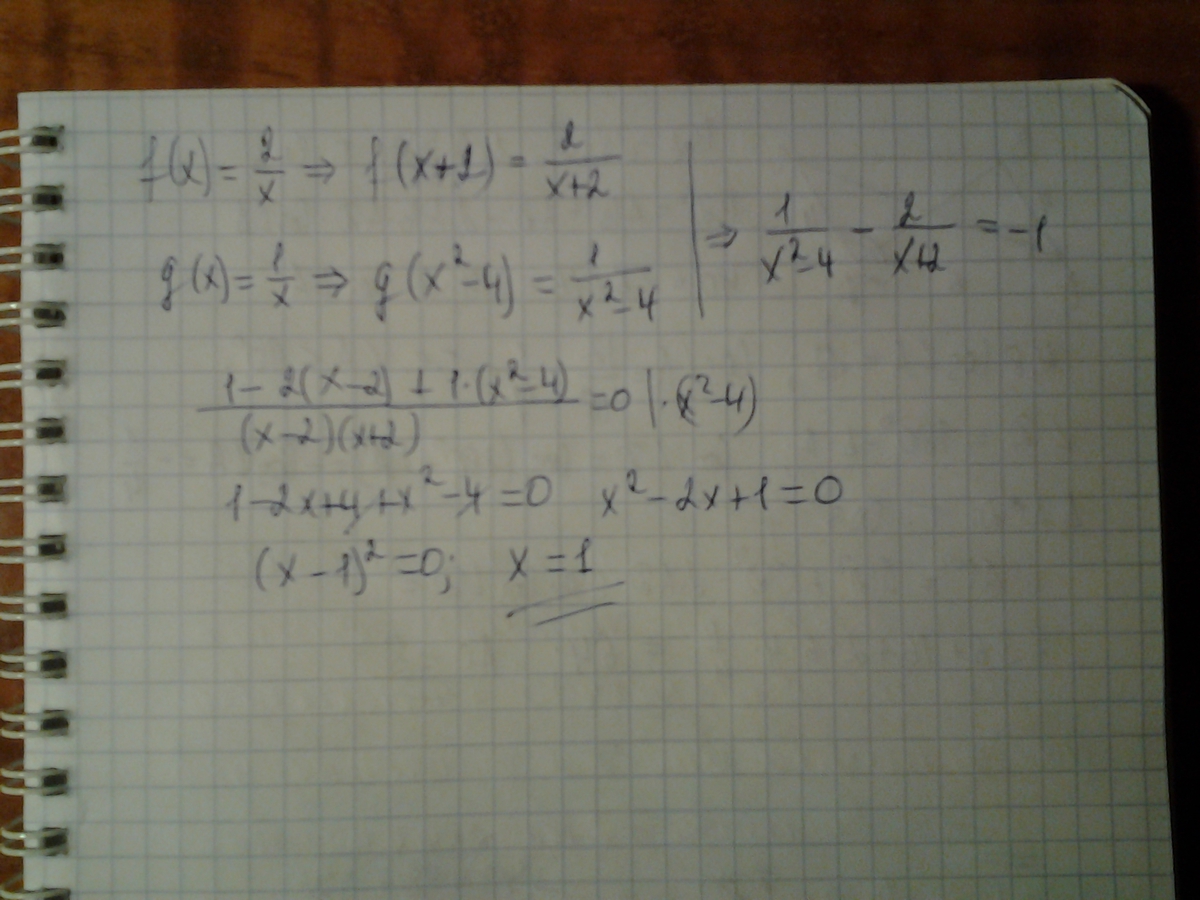 f(x) = 2/x ⇒ f(x+2) = 2/(x+2)
g(x) = 1/x ⇒ g(x²-4) = 1/(x²-4)
⇒ 1/(x²-4) - 2/(x+2) = -1
(1 - 2(x-2) + 1·(x²-4))/((x-2)(x+2)) = 0 |·(x²-4)
1-2x+4+x²-4 = 0 x²-2x+1 = 0
(x-1)² = 0; x = 1